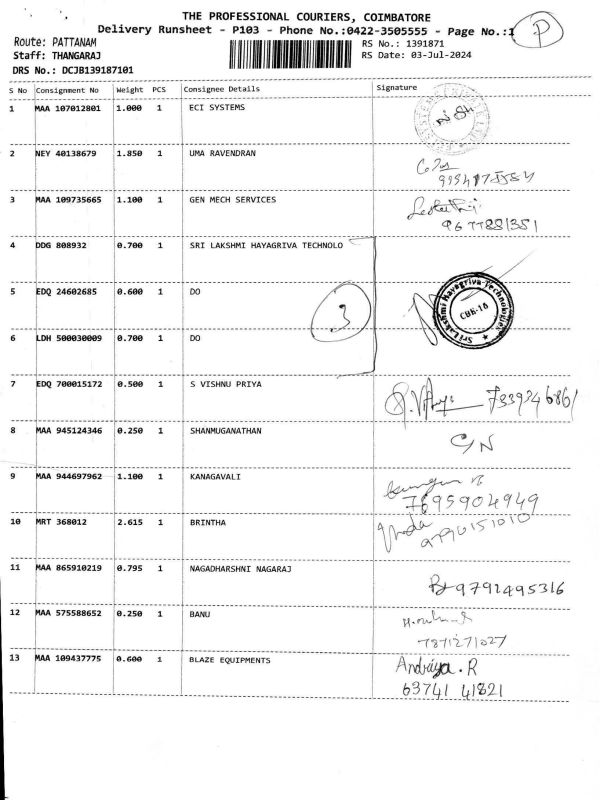 THE PROFESSIONAL COURIERS, COIMBATORE
Delivery Runsheet - P103 - Phone No.:0422-3505555 - Page No.:1
P
Route: PATTANAM
RS No.: 1391871
Staff: THANGARAJ
RS Date: 03-Jul-2024
DRS No.: DCJB139187101
S No Consignment No Weight PCS Consignee Details Signature
1 MAA 107012801 1.000 1 ECI SYSTEMS
2 NEY 40138679 1.850 1 UMA RAVENDRAN
3 MAA 109735665 1.100 1 GEN MECH SERVICES
9677881351
4 DDG 808932 0.700 1 SRI LAKSHMI HAYAGRIVA TECHNOLO
5 EDQ 24602685 0.600 1 DO
3
Sri Lakshmi Hayagriva Technologies
CBE-16
6 LDH 500030009 0.700 1 DO
7 EDQ 700015172 0.500 1 S VISHNU PRIYA
8 MAA 945124346 0.250 1 SHANMUGANATHAN
C/N
9 MAA 944697962 1.100 1 KANAGAVALI
7695904949
10 MRT 368012 2.615 1 BRINTHA
11 MAA 865910219 0.795 1 NAGADHARSHNI NAGARAJ
9791495316
12 MAA 575588652 0.250 1 BANU
7871271027
13 MAA 109437775 0.600 1 BLAZE EQUIPMENTS
Andriya.R
63741 41821